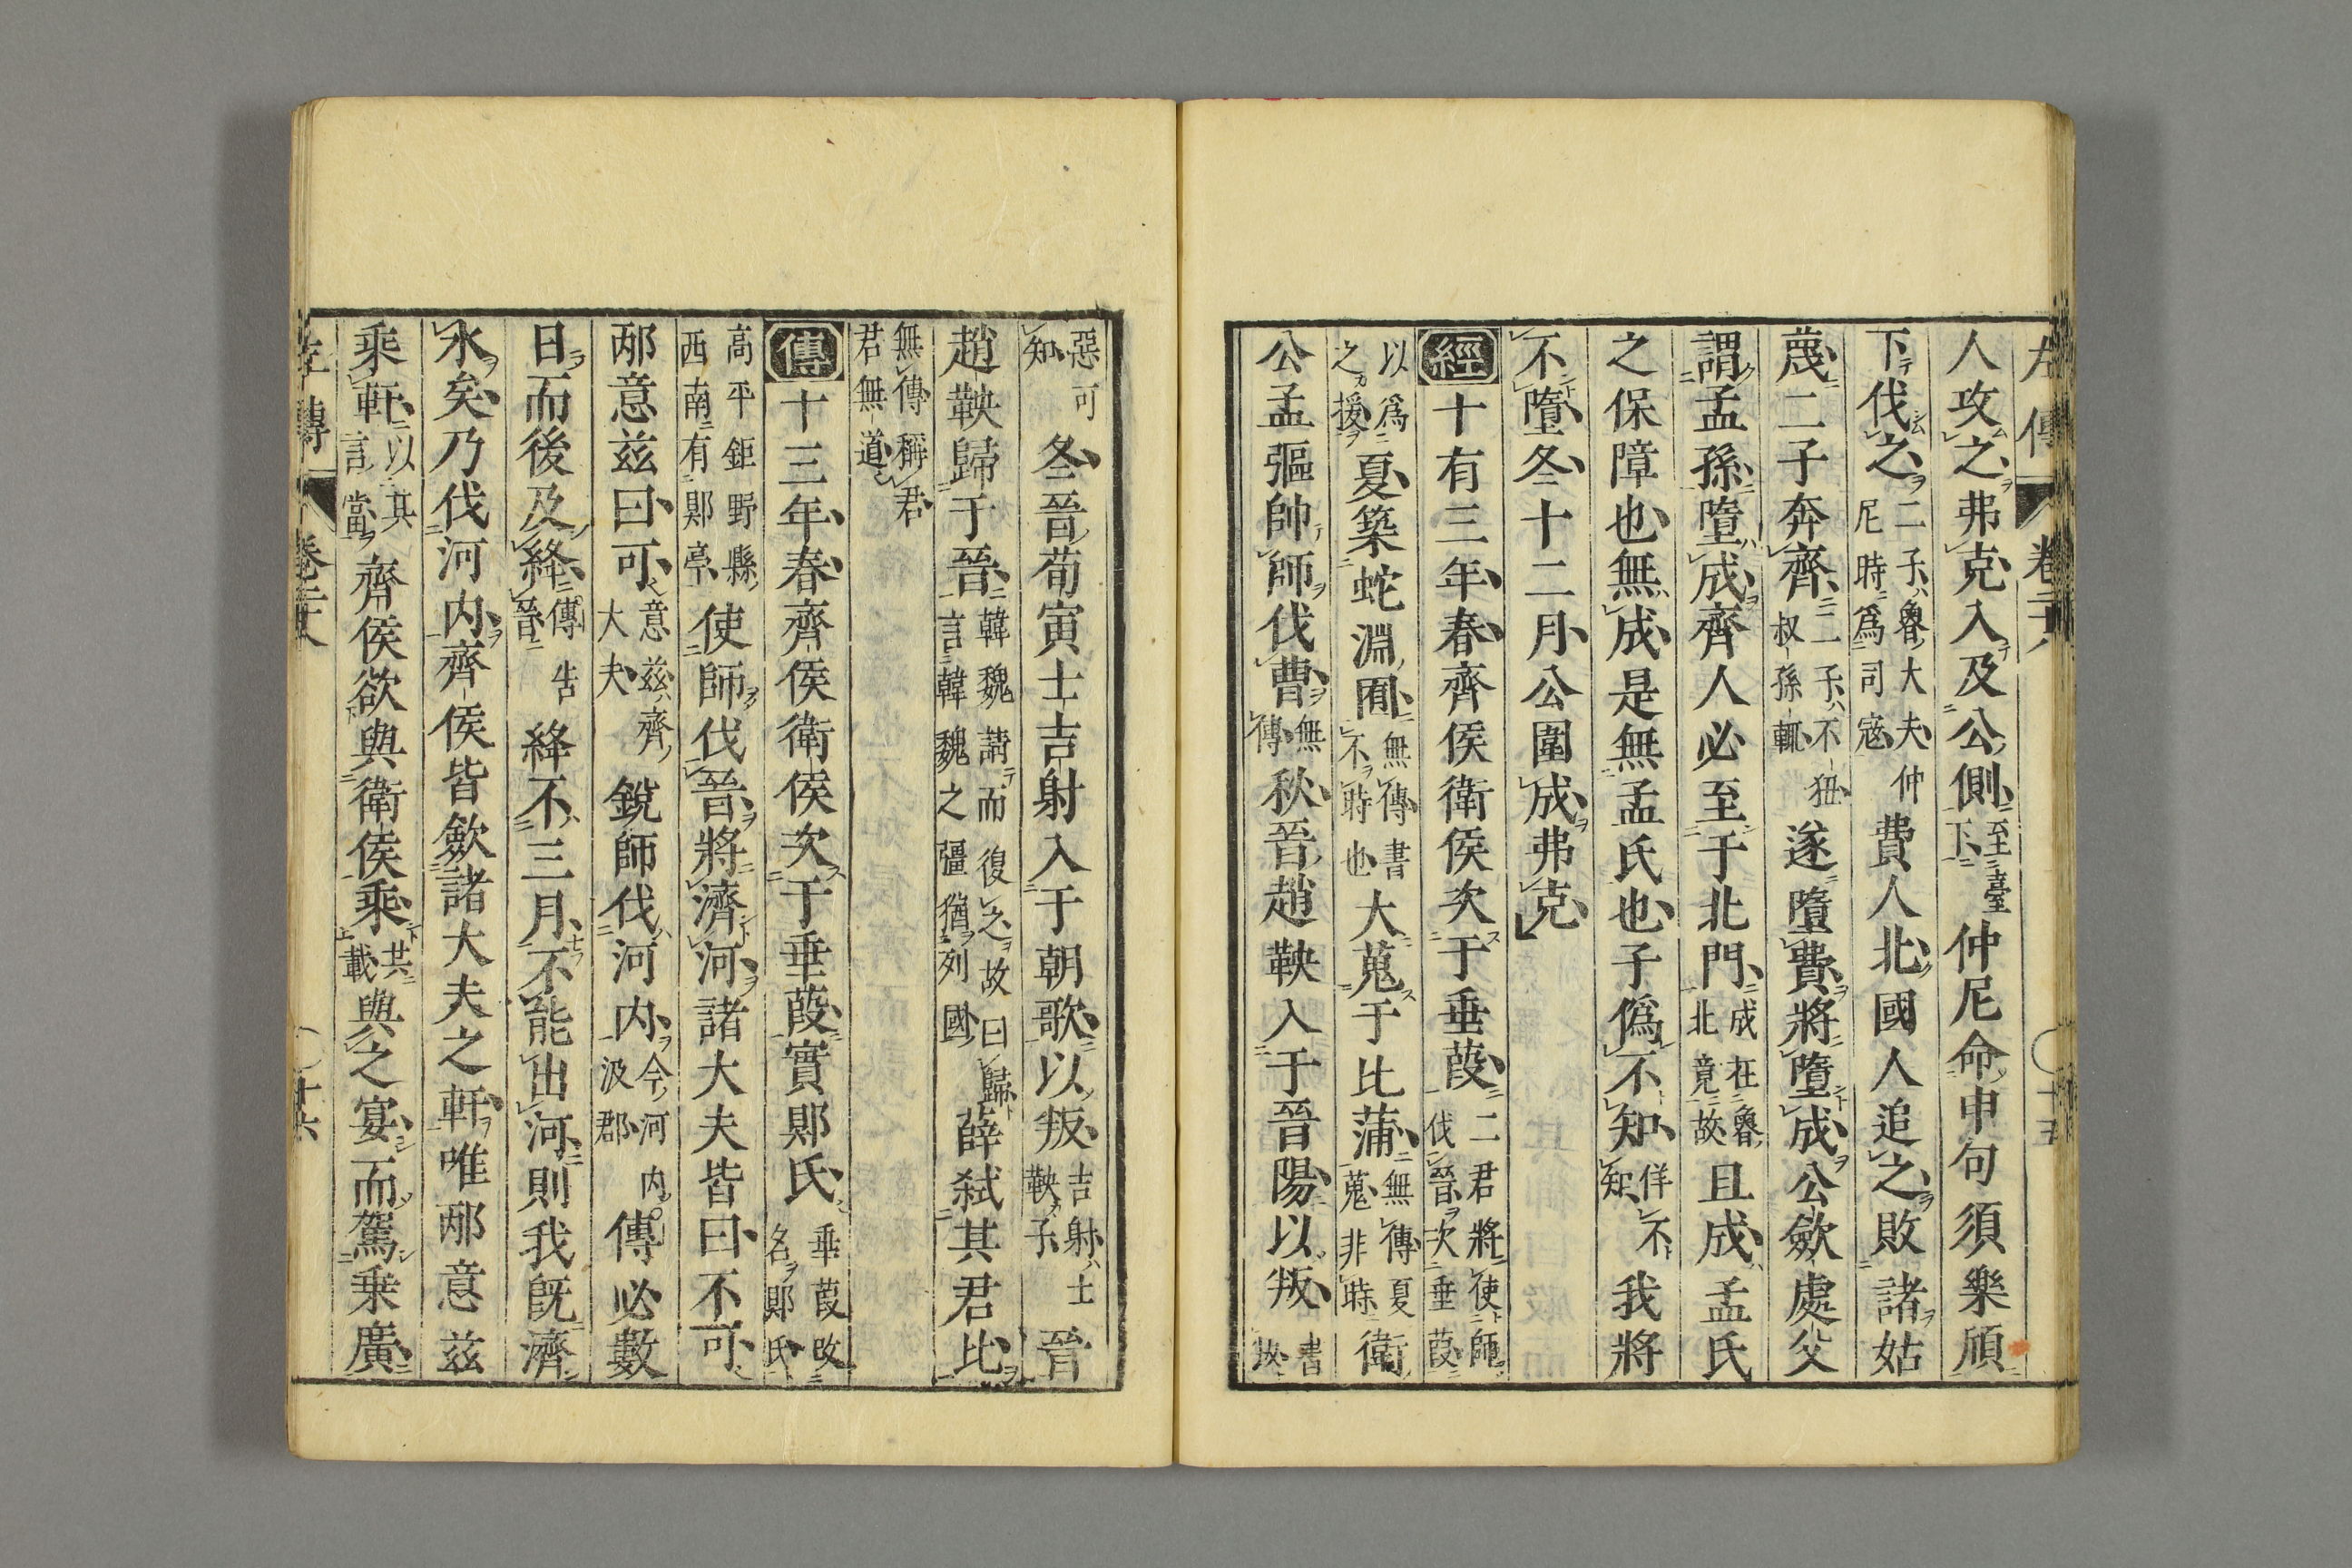 左傳 卷二十八 十五
人攻之弗克入及公側至臺下仲尼命申句須樂頎
下伐之二子魯大夫仲尼時爲司寇費人北國人追之敗諸姑
蔑二子奔齊二子不狃叔孫輒遂墮費將墮成公斂處父
謂孟孫墮成齊人必至于北門成在魯北竟故且成孟氏
之保障也無成是無孟氏也子僞不知佯不知我將
不墮冬十二月公圍成弗克
經十有三年春齊侯衛侯次于垂葭二君將使師伐晉次垂葭
以爲之援夏築蛇淵囿無傳書不時也大蒐于比蒲無傳夏蒐非時衛
公孟彄帥師伐曹無傳秋晉趙鞅入于晉陽以叛書叛
惡可知冬晉荀寅士吉射入于朝歌以叛吉射士鞅子晉
趙鞅歸于晉韓魏請而復之故曰歸言韓魏之彊猶列國薛弑其君比
無傳稱君君無道
傳十三年春齊侯衛侯次于垂葭實郹氏垂葭改名郹氏
高平鉅野縣西南有郹亭使師伐晉將濟河諸大夫皆曰不可
邴意茲曰可意茲齊大夫銳師伐河内今河内汲郡傳必數
日而後及絳傳告晉絳不三月不能出河則我既濟
水矣乃伐河内齊侯皆斂諸大夫之軒唯邴意茲
乘軒以其言當齊侯欲與衛侯乘共載與之宴而駕乘廣
左傳 卷二十八 十六